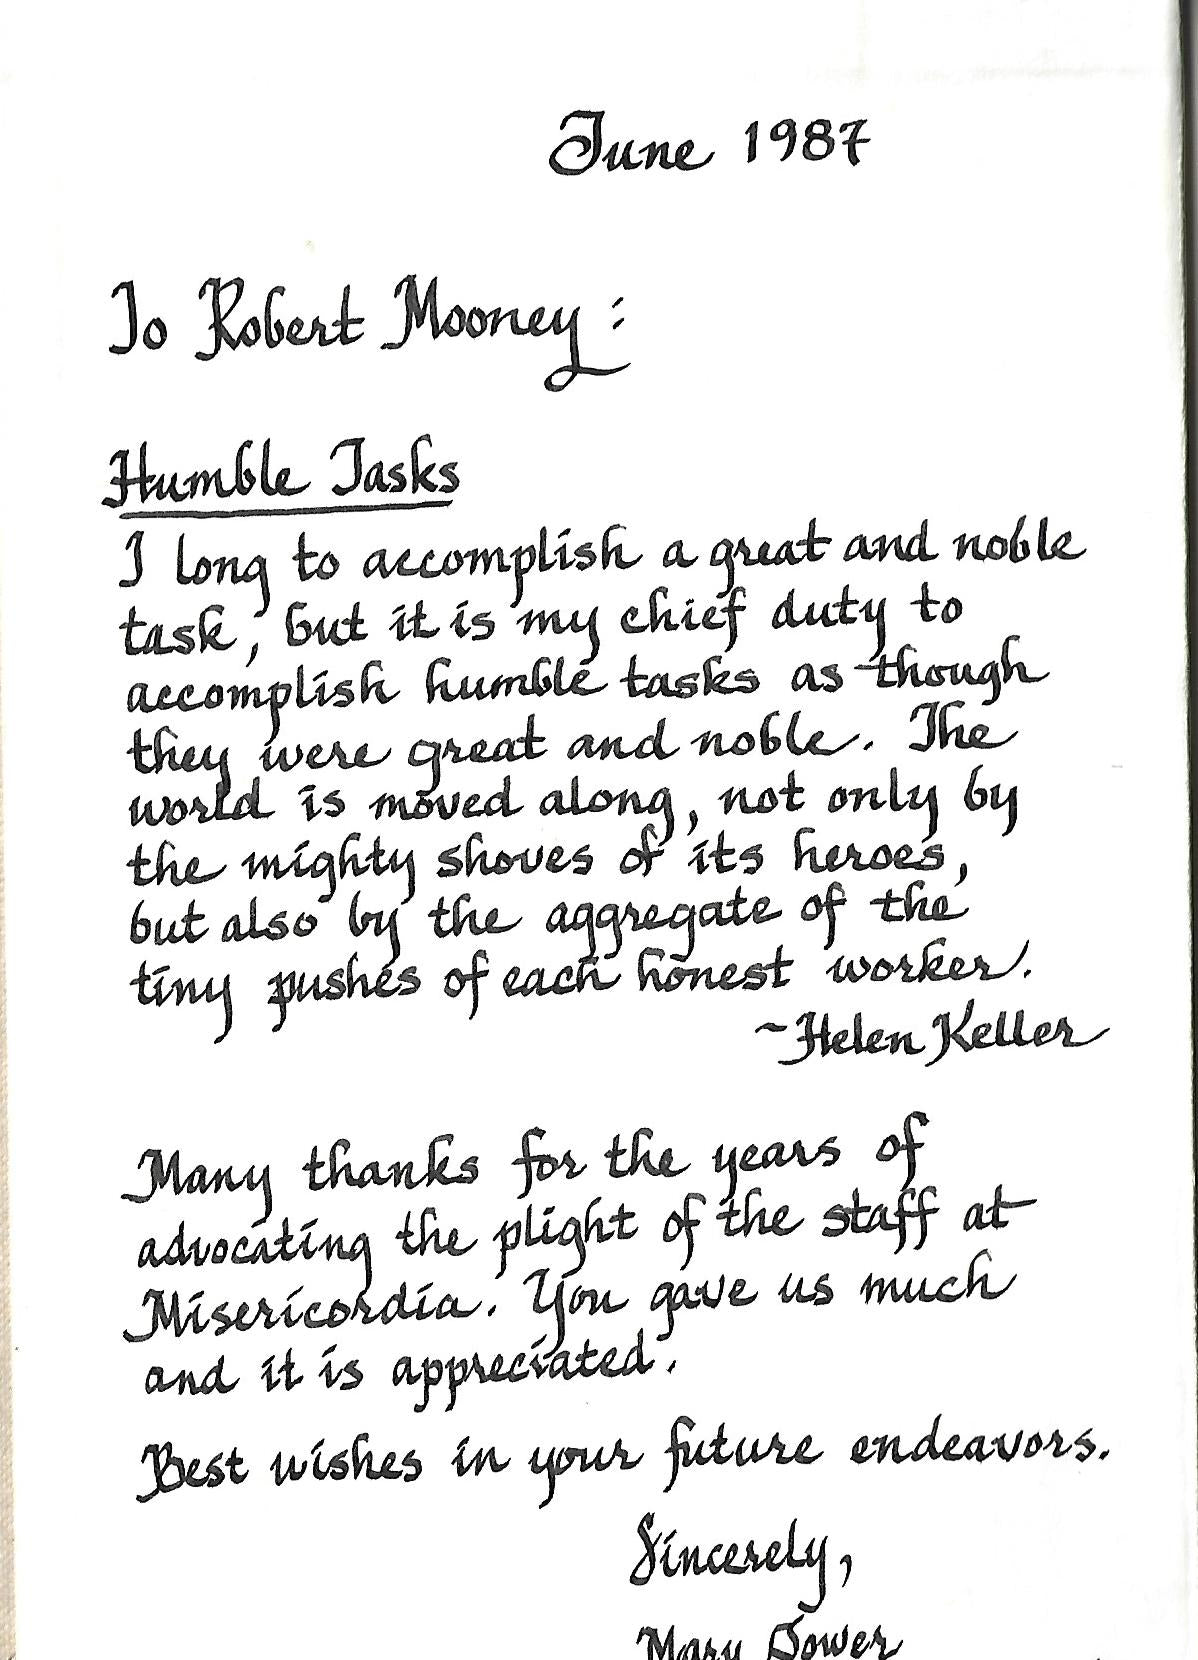 June 1987
To Robert Mooney:
Humble Tasks
I long to accomplish a great and noble
task, but it is my chief duty to
accomplish humble tasks as though
they were great and noble. The
world is moved along, not only by
the mighty shoves of its heroes,
but also by the aggregate of the
tiny pushes of each honest worker.
~Helen Keller
Many thanks for the years of
advocating the plight of the staff at
Misericordia. You gave us much
and it is appreciated.
Best wishes in your future endeavors.
Sincerely,
Mary